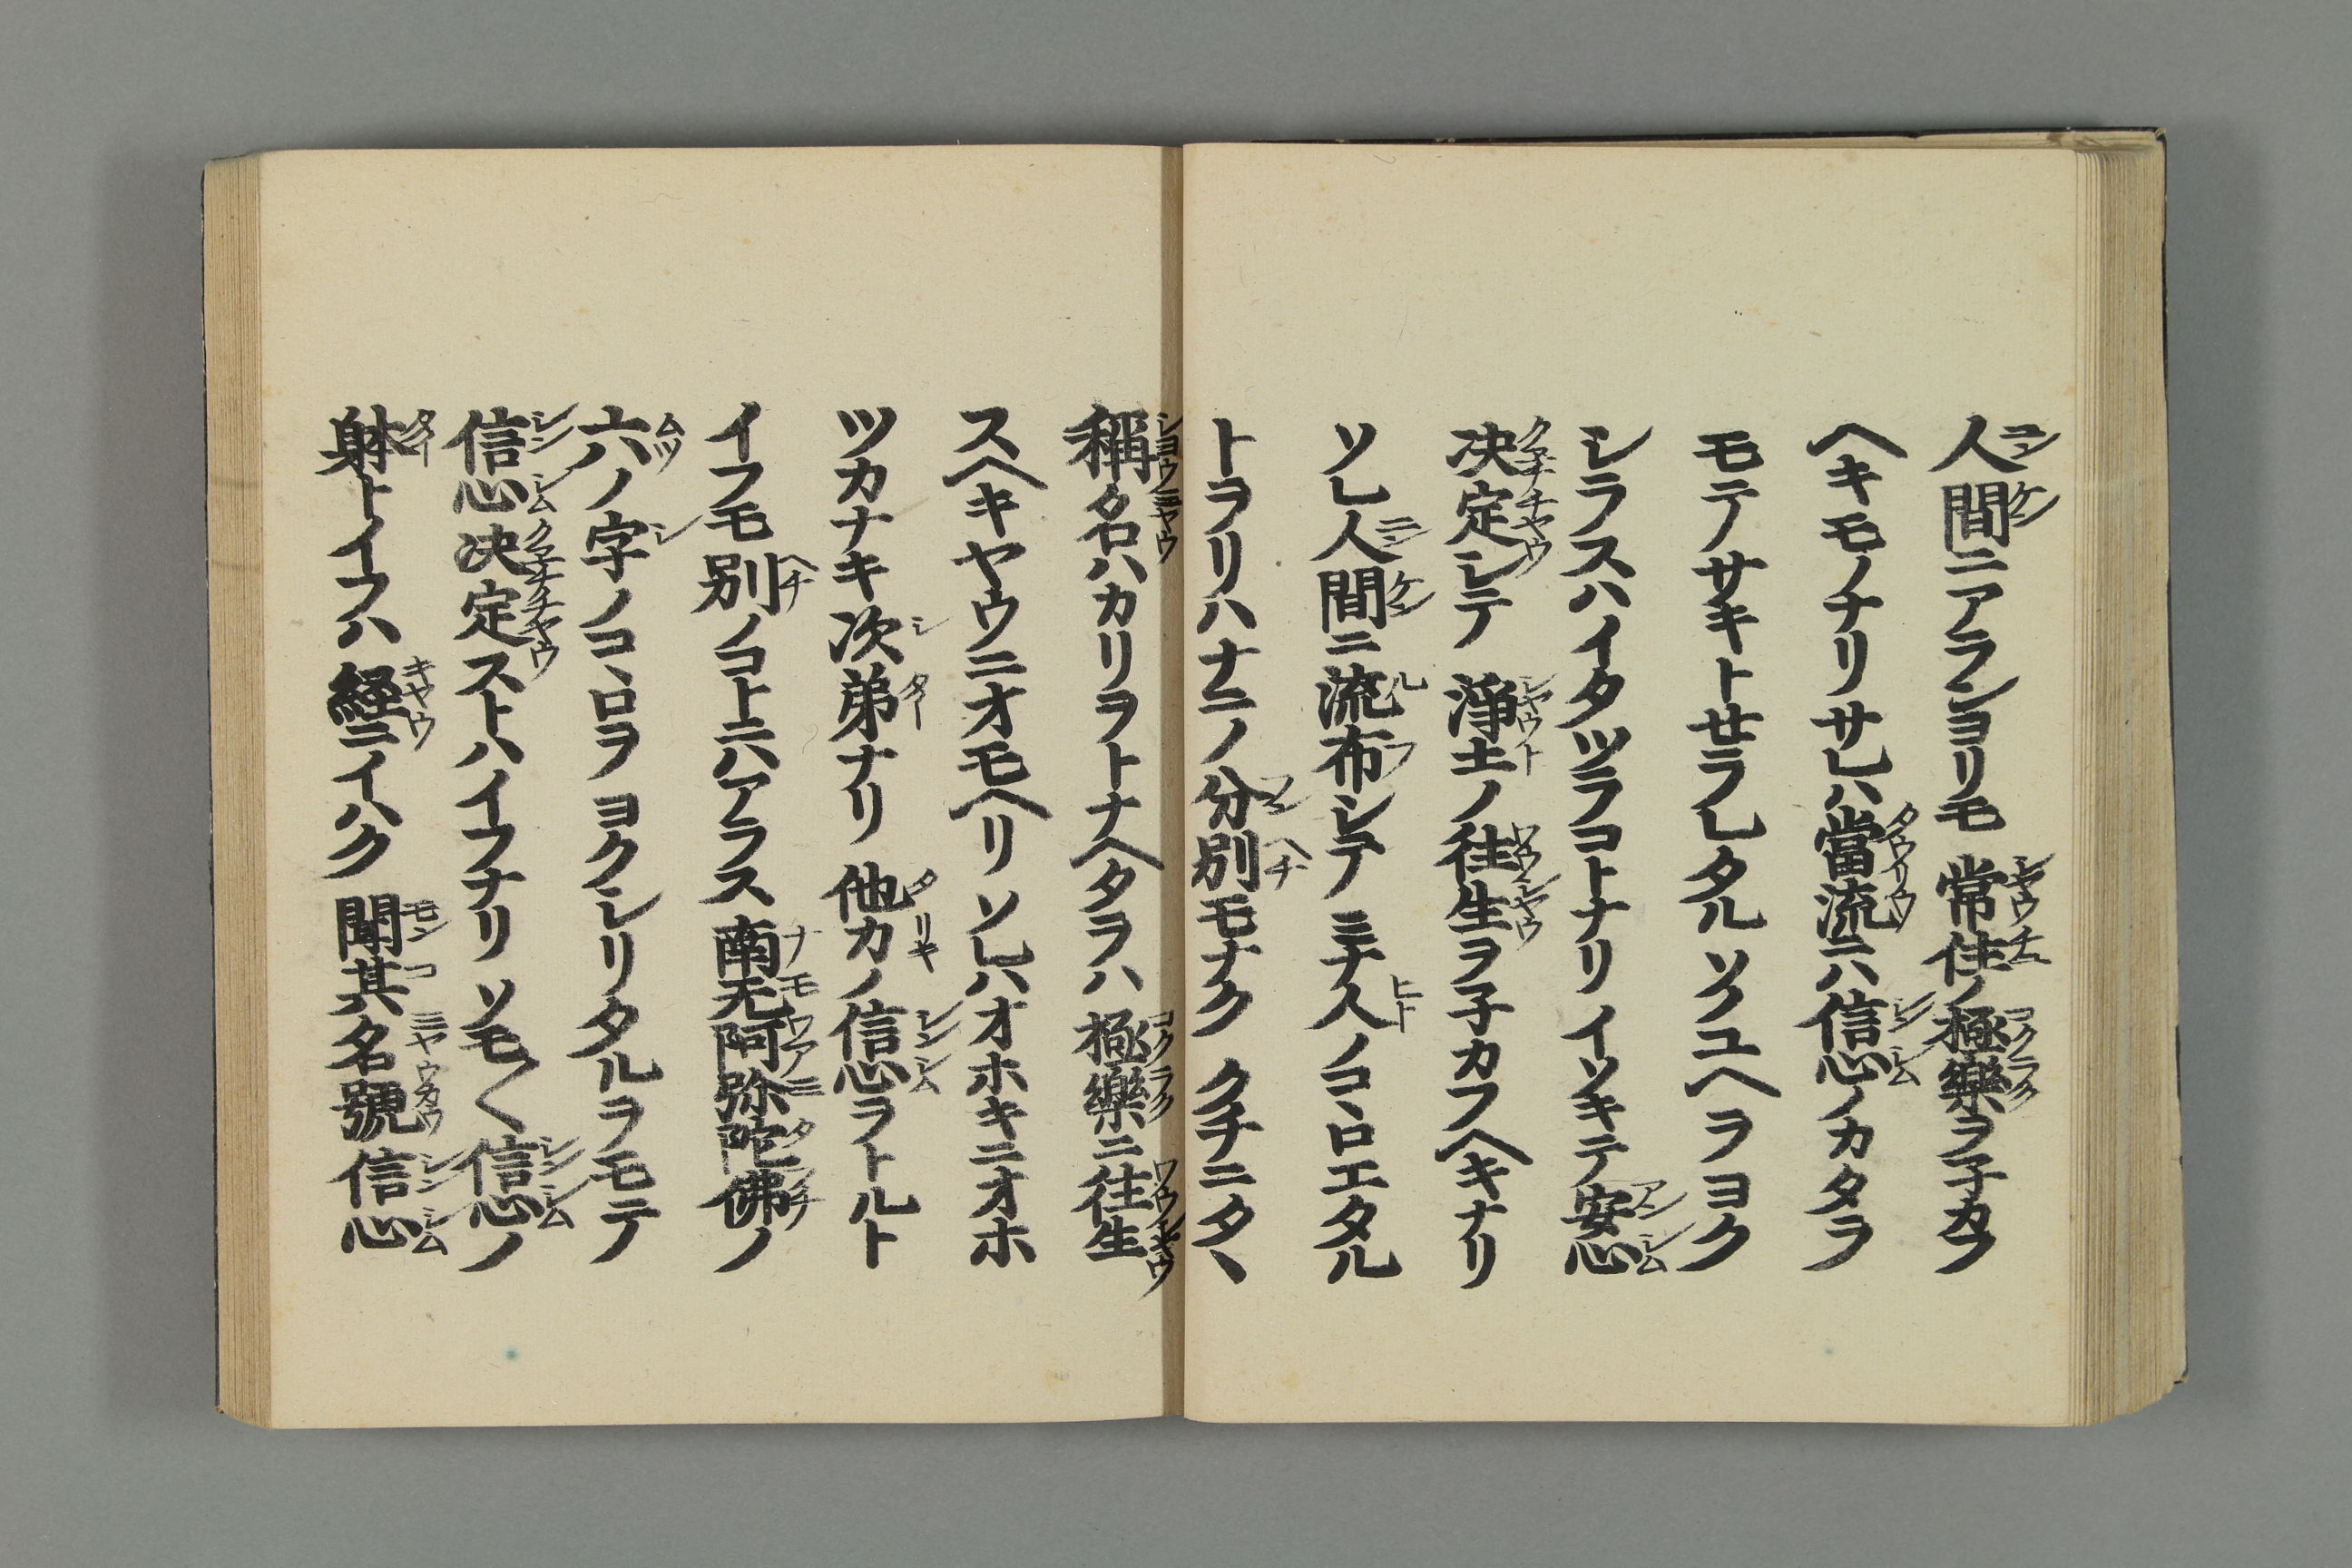 人間ニアランヨリモ常住ノ極樂ヲ子カフ
ヘキモノナリサレハ當流ニハ信心ノカタヲ
モテサキトセラレタルソノユヘヲヨク
シラスハイタツラコトナリイソキテ安心
决定シテ淨土ノ往生ヲ子カフヘキナリ
ソレ人間ニ流布シテミナ人ノコヽロエタル
トヲリハナニノ分別モナククチニタヽ
稱名ハカリヲトナヘタラハ極樂ニ往生
スヘキヤウニオモヘリソレハオホキニオホ
ツカナキ次弟ナリ他力ノ信心ヲトルト
イフモ別ノコトニハアラス南无阿弥陀佛ノ
六ノ字ノコヽロヲヨクシリタルヲモテ
信心决定ストハイフナリソモ〱信心ノ
躰トイフハ經ニイハク聞其名號信心